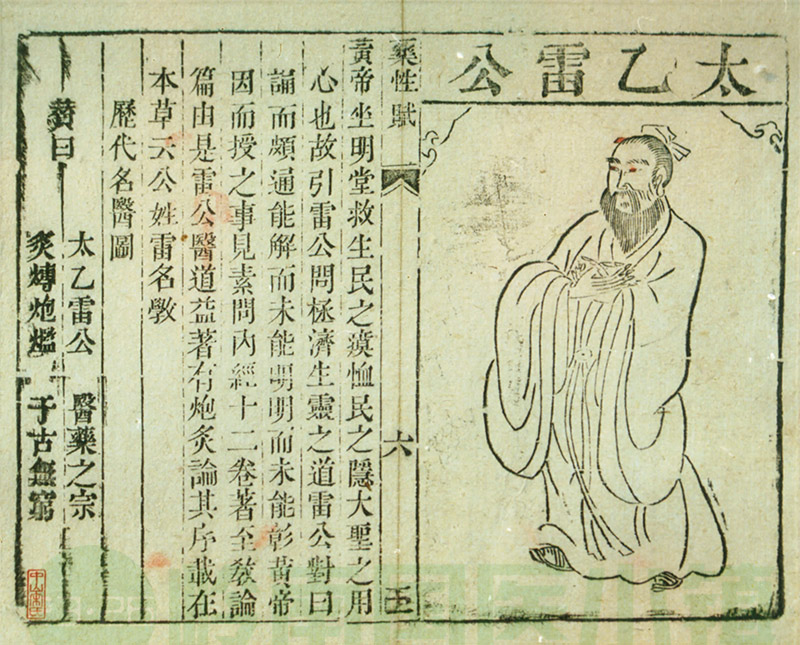 太乙雷公
藥性賦
六
五
黃帝坐明堂救生民之瘼恤民之隱大聖之用
心也故引雷公問極濟生靈之道雷公對曰
誦而頗通能解而未能明明而未能彰黃帝
因而授之事見素問內經十二卷著至敎論
篇由是雷公醫道益著有炮炙論其序載在
本草云公姓雷名斆
歷代名醫圖
贊曰
太乙雷公 醫藥之宗
炙煿炮爁 千古無窮